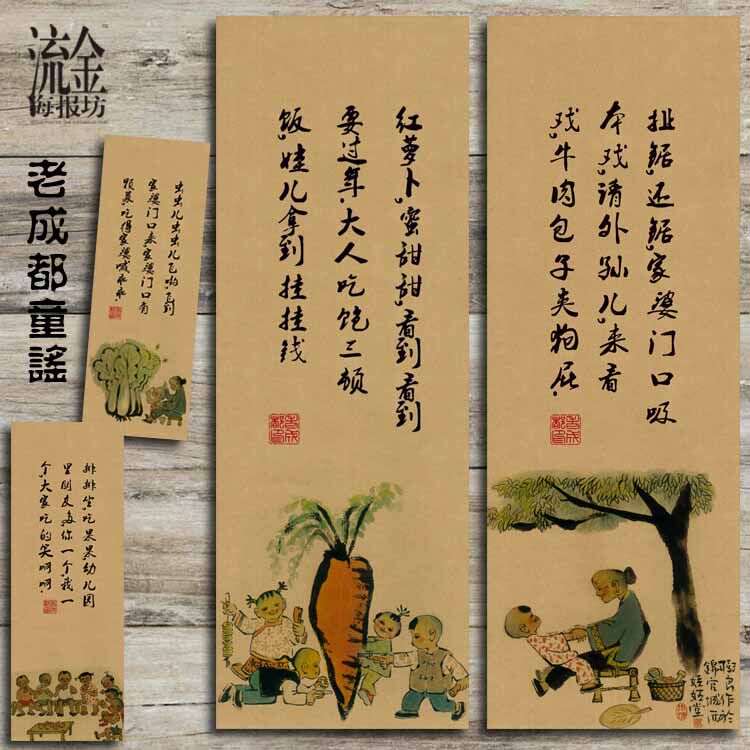 流金
海报坊
老成都童謠
虫虫儿虫虫儿飞哟飞到
家婆门口来家婆门口有
颗菜吃得家婆喊乖乖
排排坐吃果果幼儿园
里朋友多你一个我一
个大家吃的笑呵呵
红萝卜蜜甜甜看到看到
要过年大人吃饱三顿
饭娃儿拿到挂挂钱
扯锯还锯家婆门口吸
本戏请外孙儿来看
戏牛肉包子夹狗屁
良作於
錦官城西